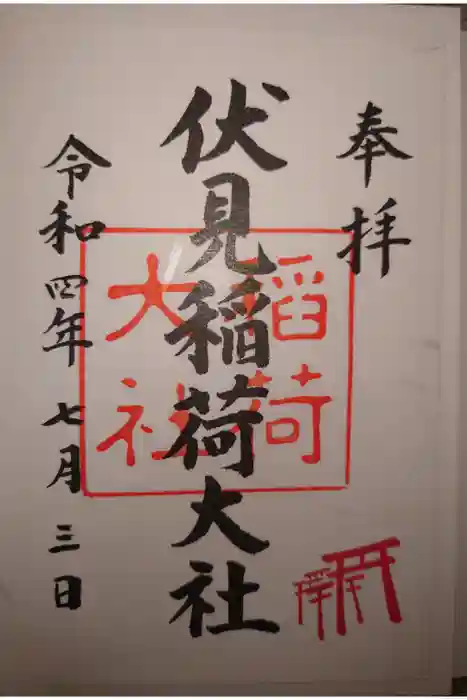 奉拝
伏見稲荷大社
稲荷
大社
令和四年七月三日